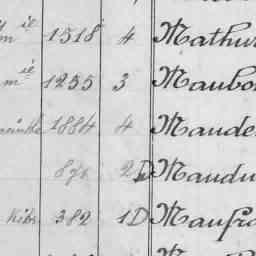 m ie 1518 4 Mathu
m ie 1255 3 Maubo
1884 4 Maude
896 2D Maudu
Kibr 382 1D Maufra